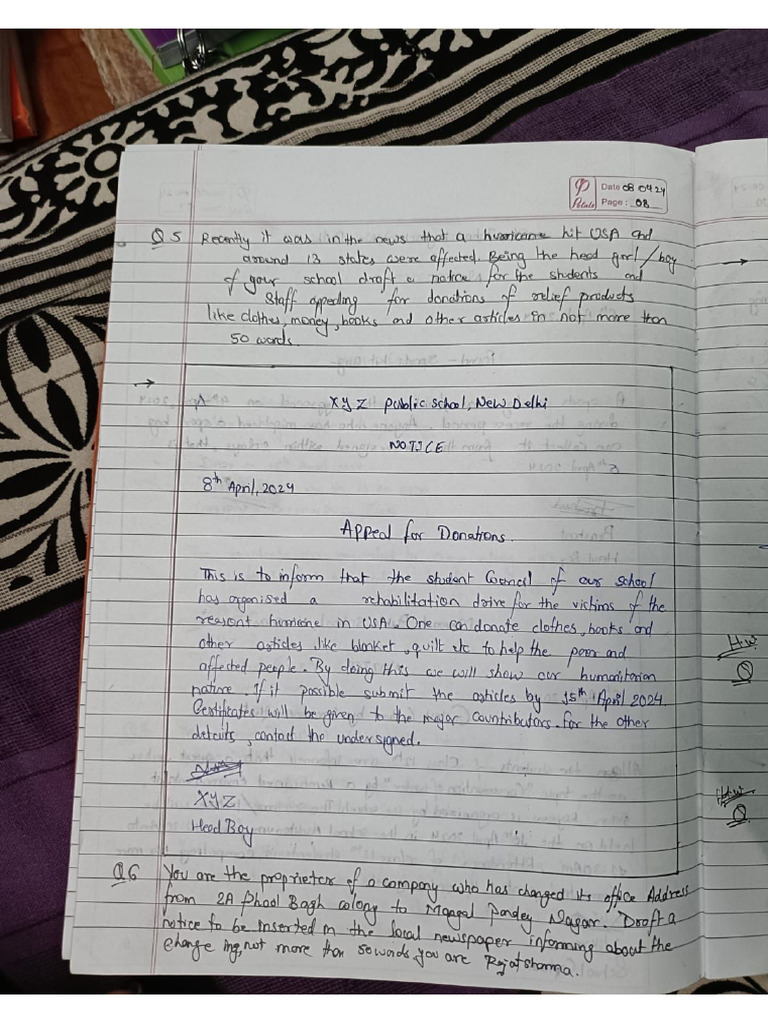 Date 08 04 24
Page: 08
Q5 Recently it was in the news that a hurricane hit USA and
around 13 states were affected. Being the head girl/boy
of your school draft a notice for the students and
Staff appealing for donations of relief products
like clothes, money, books and other articles in not more than
50 words.
XYZ Public school, New Delhi
NOTICE
8th April, 2024
Appeal for Donations.
This is to inform that the student Council of our school
has organised a rehabilitation drive for the victims of the
reasont hurricane in USA. One can donate clothes, books and
other articles like blanket, quilt etc to help the poor and
affected people. By doing this we will show our humanitarian
nature. If it possible submit the articles by 15th April 2024.
Certificates will be given to the major countributors. For the other
details, contact the undersigned.
XYZ
Head Boy
Q6 You are the proprieter of a company who has changed its office Address
from 2A Phool Bagh colony to Mangal Pandey Nagar. Draft a
notice to be inserted in the local newspaper informing about the
change in not more than 50 words. you are Rajat sharma.
H.W
Q
H.W
Q